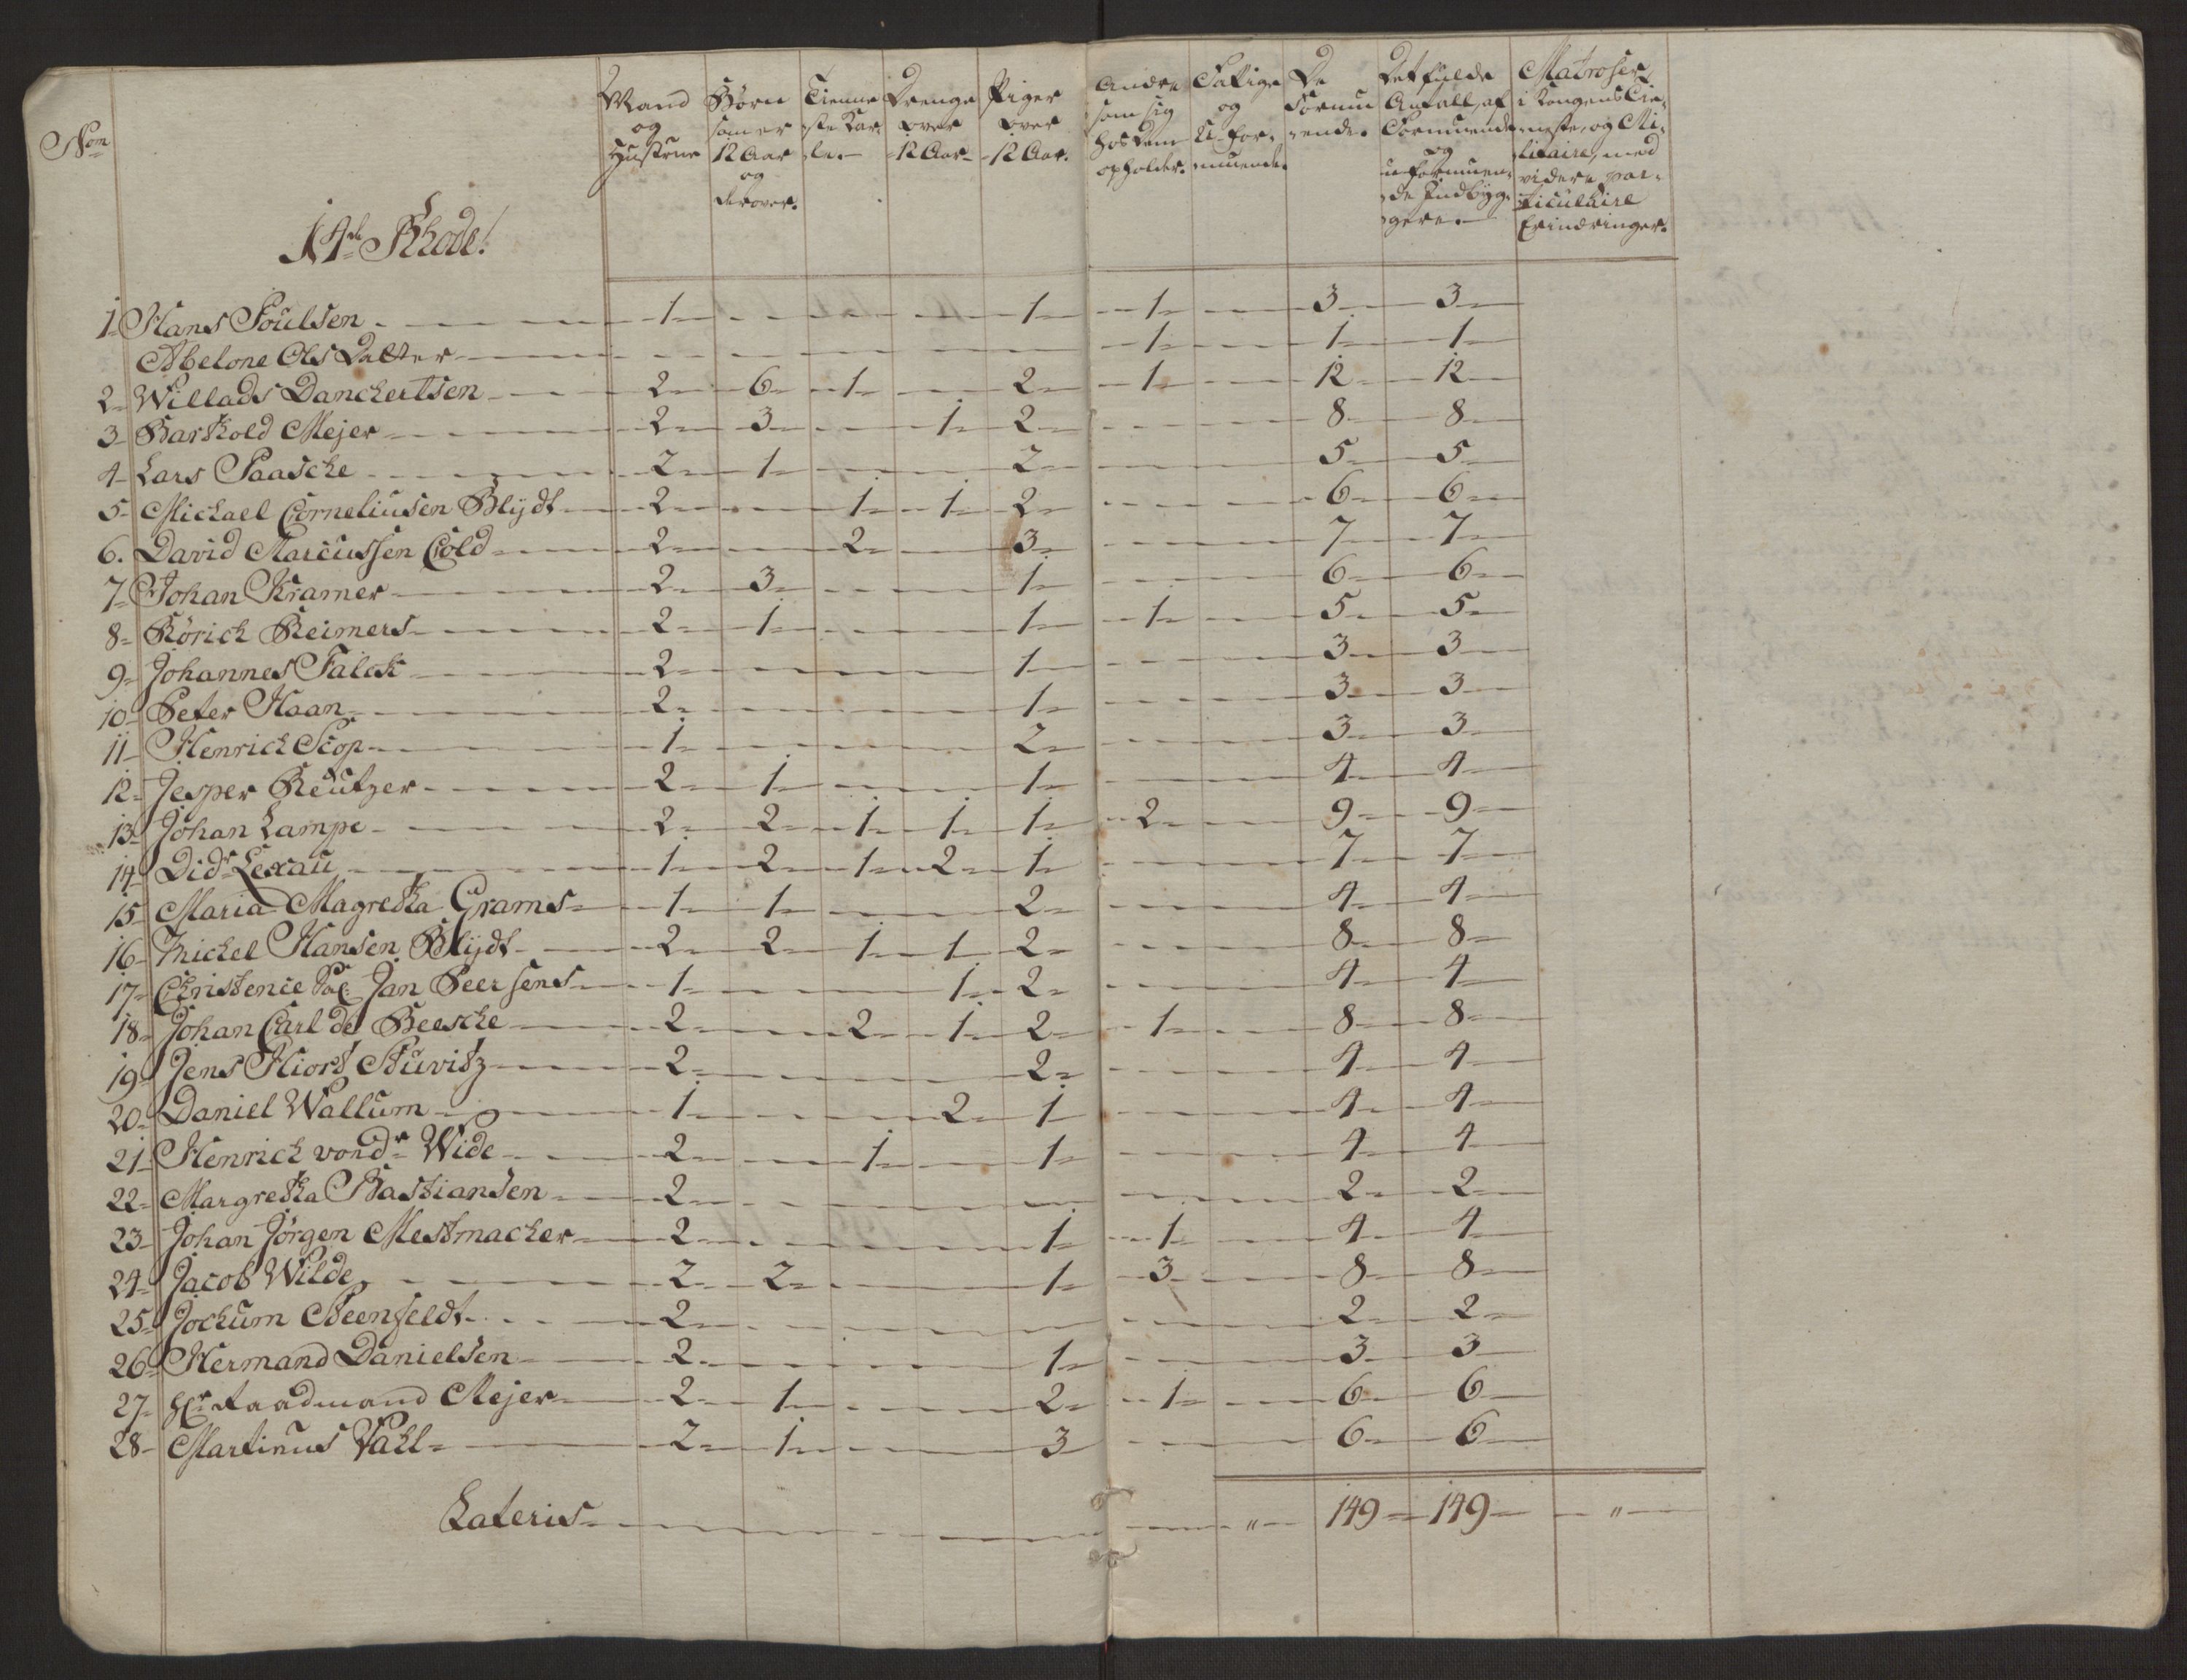 Nom
14de Rhode!
Mand og Hustrue
Børn som er 12 Aar og derover.
Tienneste Kar-le.
Drenge over 12 Aar
Piger over 12 Aar.
Andre som sig hos dem opholder.
Fattige og U-for-muende.
De Formu-ende.
Det fulde Antall, af Formuende og uformuen-de Indbyg-gere.
Matroser i Kongens Tie-neste, og Mi-litaire, med videre par-ticulaire Erindringer.
1 Hans Poulsen 1 1 1 3 3
Abelone Ols Datter 1 1 1
2 Willads Danchertsen 2 6 1 2 1 12 12
3 Barthold Mejer 2 3 1 2 8 8
4 Lars Paasche 2 1 2 5 5
5 Michael Corneliusen Blydt 2 1 1 2 6 6
6. David Marcussen Cold 2 2 3 7 7
7 Johan Kramer 2 3 1 6 6
8 Rörich Reimers 2 1 1 1 5 5
9 Johannes Falck 2 1 3 3
10 Peter Haan 2 1 3 3
11 Henrich Scop 1 2 3 3
12 Jesper Reutzer 2 1 1 4 4
13 Johan Lampe 2 2 1 1 1 2 9 9
14 Didr Lexau 1 2 1 2 1 7 7
15 Maria Magretha Grams 1 1 2 4 4
16 Michel Hansen Blydt 2 2 1 1 2 8 8
17 Christence Sal: Jan Peersens 1 1 2 4 4
18 Johan Carl de Besche 2 2 1 2 1 8 8
19 Jens Hiort Stuvitz 2 2 4 4
20 Daniel Wallum 1 2 1 4 4
21 Henrich vondr Wide 2 1 1 4 4
22 Margretha Bastiansen 2 2 2
23 Johan Jörgen Mestmacher 2 1 1 4 4
24 Jacob Wilde 2 2 1 3 8 8
25 Jochum Beenfeldt 2 2 2
26 Hermand Danielsen 2 1 3 3
27 Hr Raadmand Mejer 2 1 2 1 6 6
28 Martinus Vahl 2 1 3 6 6
Lateris " 149 149 "